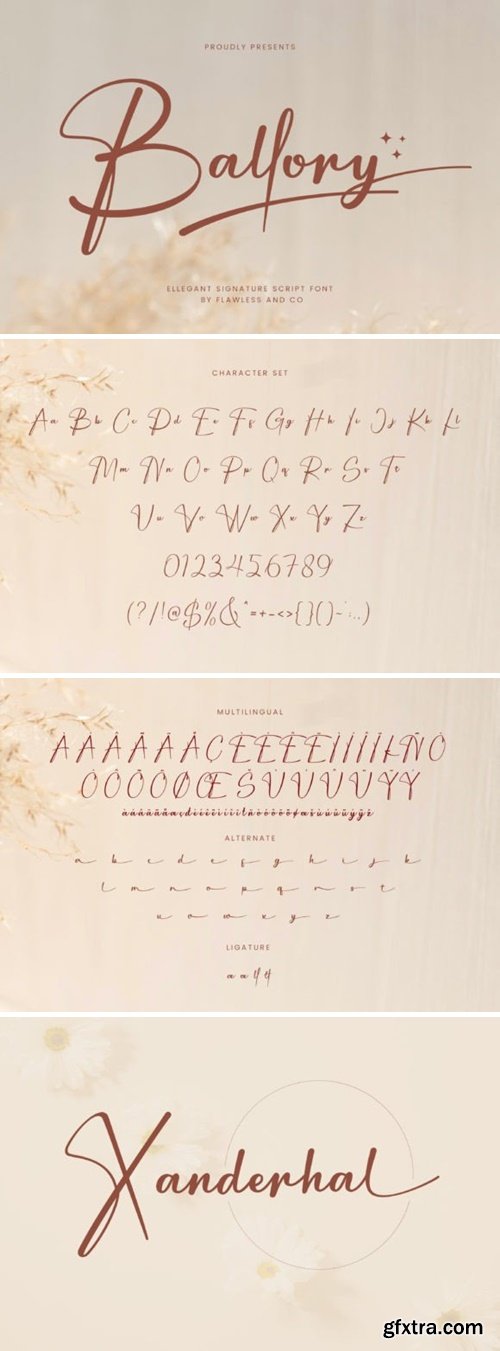 PROUDLY PRESENTS
Ballory
ELLEGANT SIGNATURE SCRIPT FONT
BY FLAWLESS AND CO
CHARACTER SET
Aa Bb Cc Dd Ee Ff Gg Hh Ii Jj Kk Ll
Mm Nn Oo Pp Qq Rr Ss Tt
Uu Vv Ww Xx Yy Zz
0123456789
MULTILINGUAL
ALTERNATE
a b c d e f g h i j k
l m n o p q r s t
u v w x y z
LIGATURE
Xanderhal
gfxtra.com